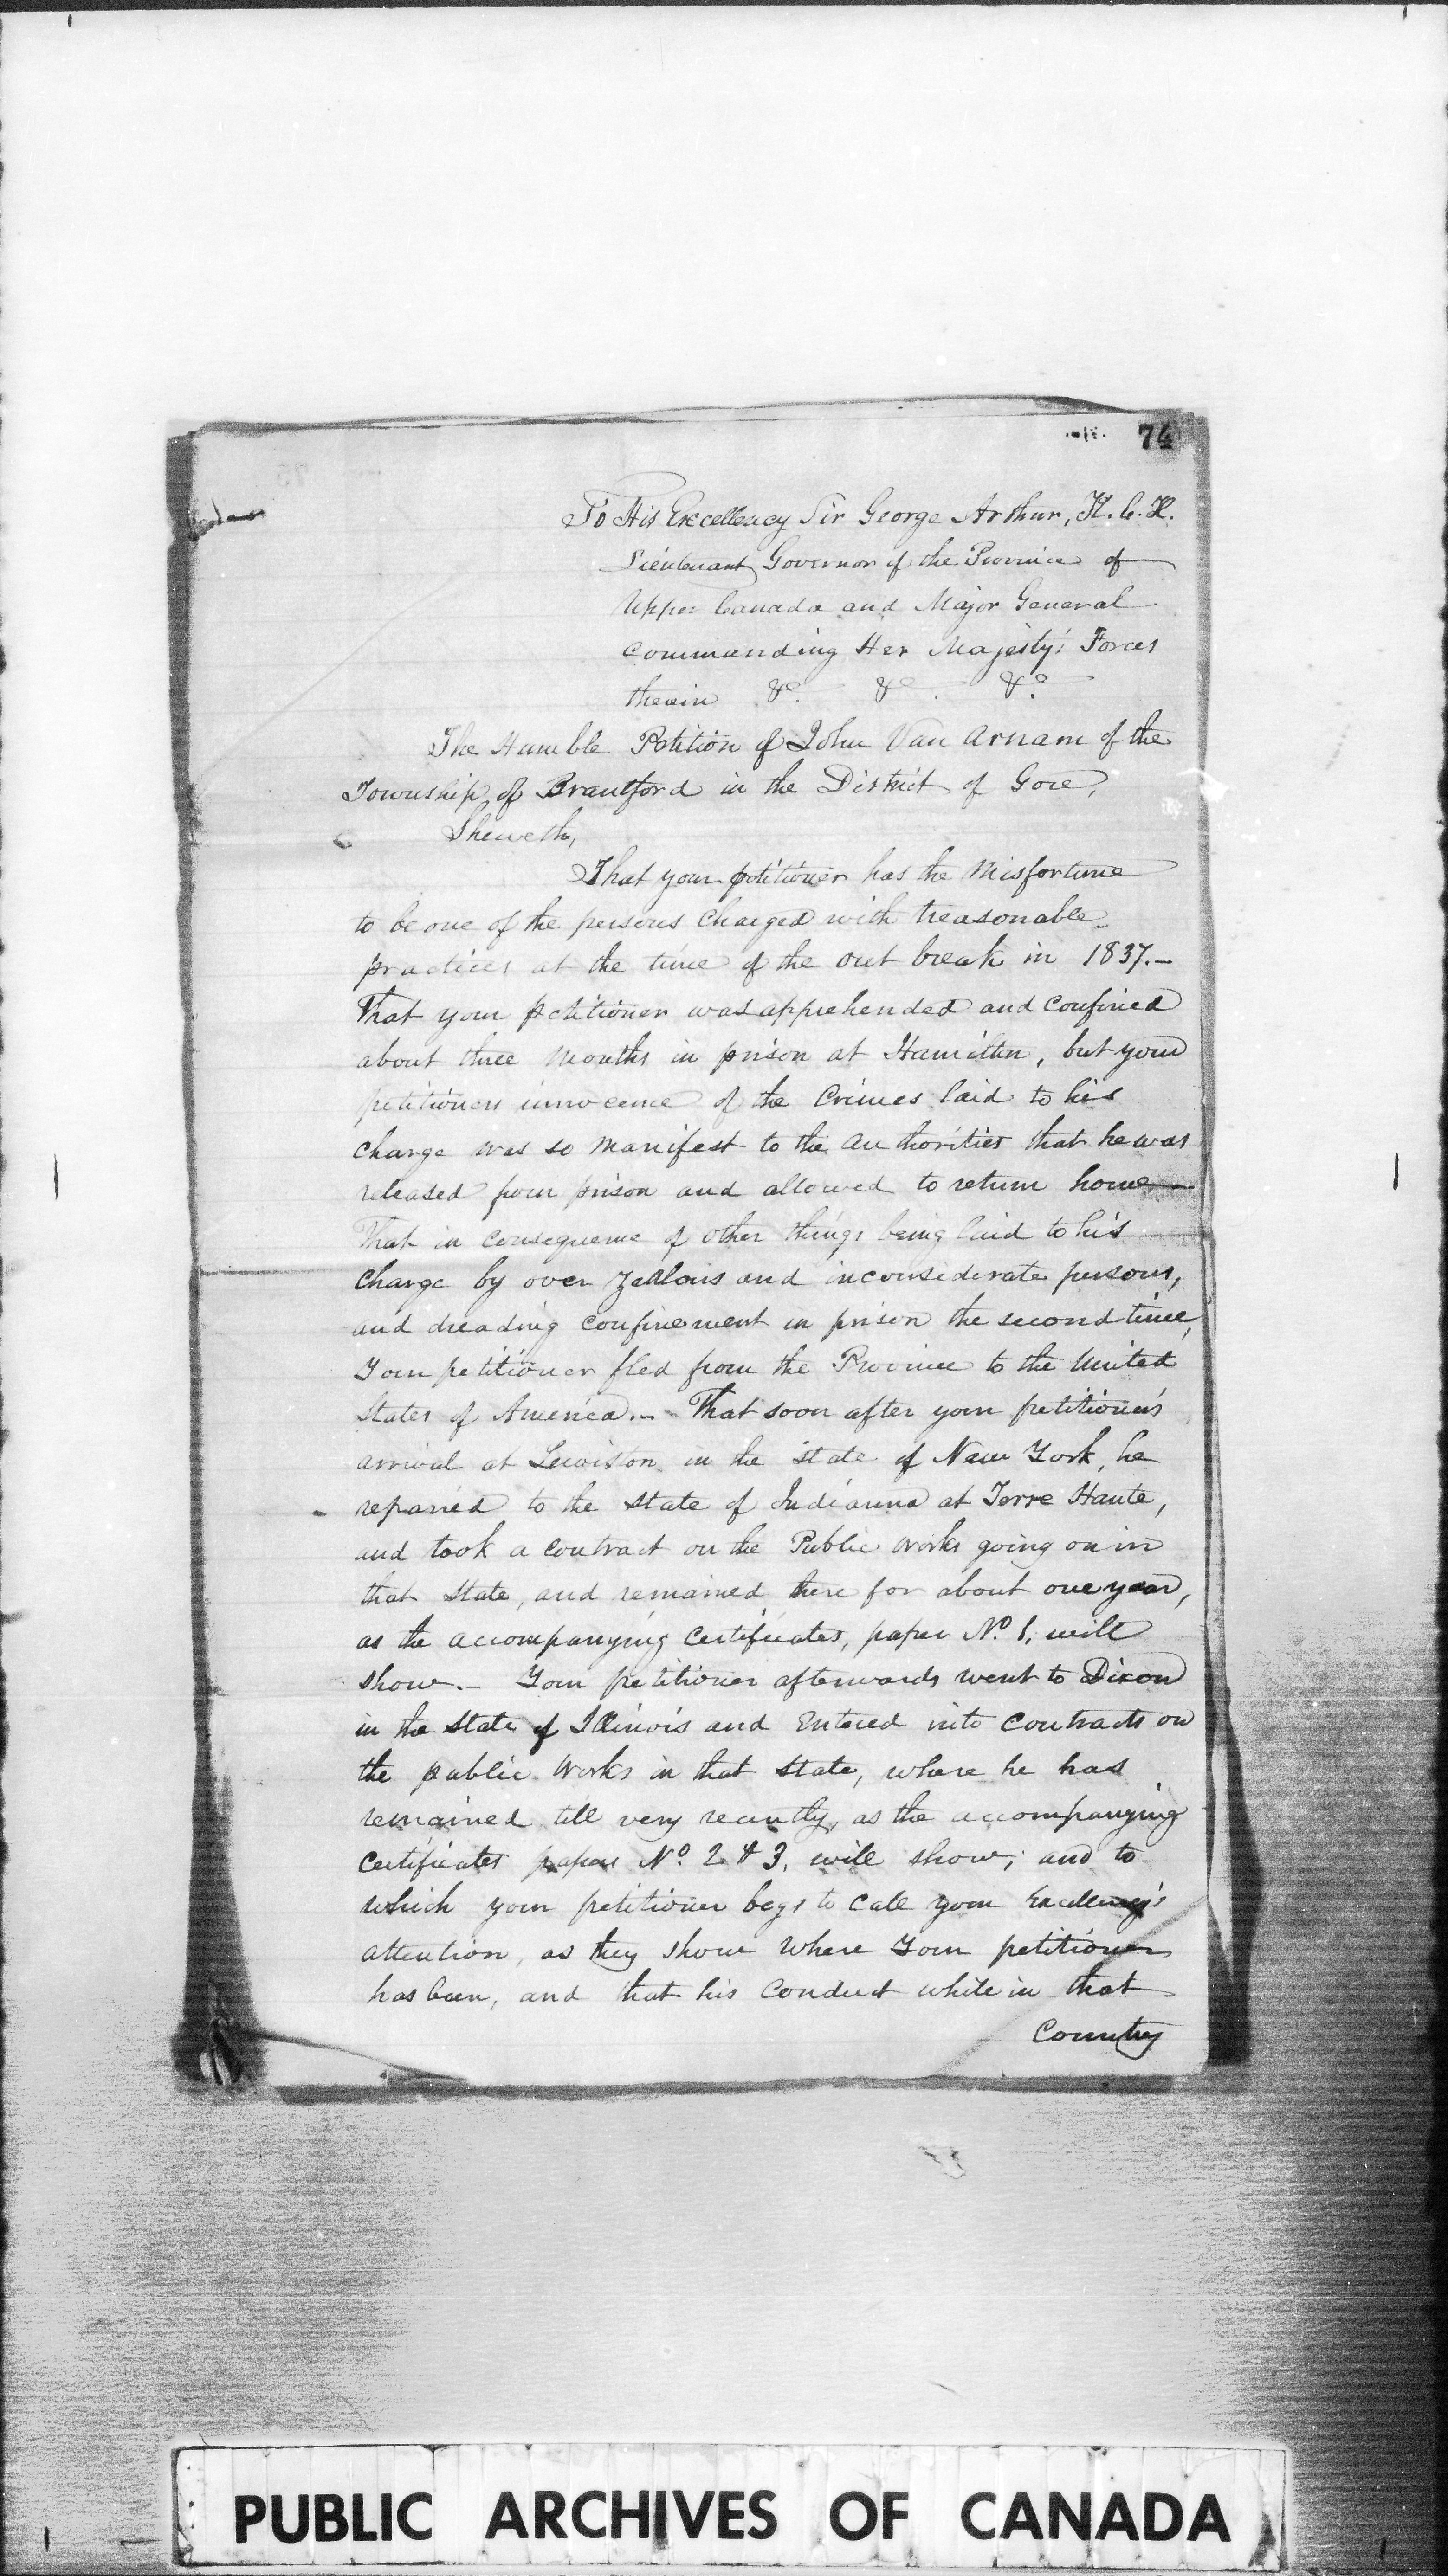 74
To His Excellency Sir George Arthur, K. C. H.
Lieutenant Governor of the Province of
Upper Canada and Major General
commanding Her Majesty's Forces
therein &c. &c. &c.
The Humble Petition of John Van Arnam of the
Township of Brantford in the District of Gore,
Sheweth,
That your petitioner has the Misfortune
to be one of the persons Charged with treasonable
practices at the time of the out break in 1837.—
That your petitioner was apprehended and confined
about three Months in prison at Hamilton, but your
petitioners innocence of the Crimes laid to his
charge was so manifest to the authorities that he was
released from prison and allowed to return home—
That in consequence of other things being laid to his
charge by over zealous and inconsiderate persons,
and dreading confinement in prison the second time,
Your petitioner fled from the Province to the United
States of America.— That soon after your petitioner's
arrival at Lewiston in the state of New York, he
repaired to the State of Indianna at Terre Haute,
and took a contract on the Public works going on in
that State, and remained there for about one year,
as the accompanying Certificates, paper No. 1, will
show.— Your petitioner afterwards went to Dixon
in the State of Illinois and Entered into Contracts on
the public Works in that State, where he has
remained till very recently, as the accompanying
Certificates papers No. 2 & 3, will show; and to
which your petitioner begs to Call your Excellency's
attention, as they show Where Your petitioner
has been, and that his Conduct while in that
Country
PUBLIC ARCHIVES OF CANADA